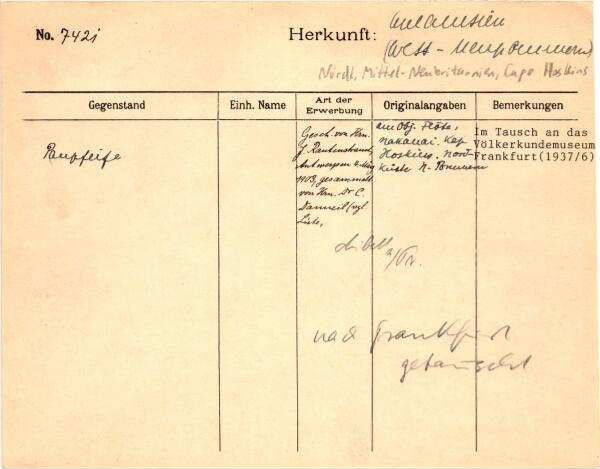 No. 7421 Herkunft: Melanesien
(West-Neupommern)
Nördl. Mittel-Neubritannien, Cape Hoskins
Gegenstand Einh. Name Art der Erwerbung Originalangaben Bemerkungen
Panpfeife
Gesch. von Hrn.
J. Rautenstrauch,
Antwerpen
1903, gesammelt
von Hrn. Dr. C.
Danneil (vgl.
Liste,
am Obj. Flöte,
Nakanai. Kap
Hoskins. Nord-
küste N-Pommern
Im Tausch an das
Völkerkundemuseum
Frankfurt(1937/6)
nach Frankfurt
getauscht